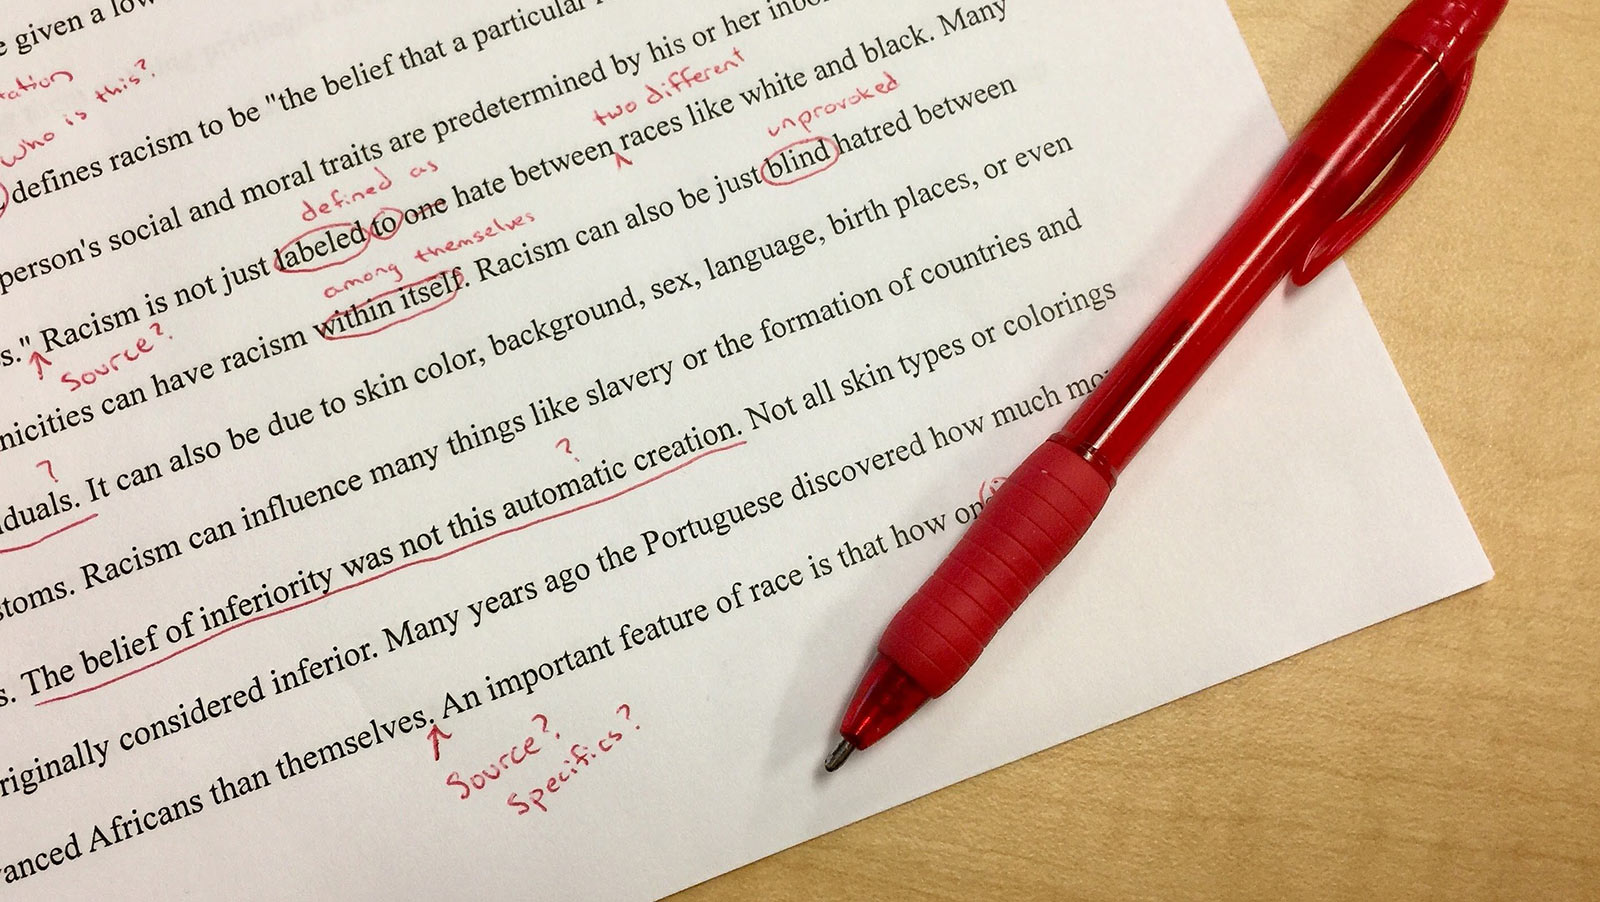 given a low
tation
who is this?
defines racism to be "the belief that a particular
person's social and moral traits are predetermined by his or her inbo
two different
defined as
s." Racism is not just labeled to one hate between races like white and black. Many
Source?
among themselves
unprovoked
nicities can have racism within itself. Racism can also be just blind hatred between
?
duals. It can also be due to skin color, background, sex, language, birth places, or even
stoms. Racism can influence many things like slavery or the formation of countries and
?
s. The belief of inferiority was not this automatic creation. Not all skin types or colorings
riginally considered inferior. Many years ago the Portuguese discovered how much mo
anced Africans than themselves. An important feature of race is that how on
Source?
Specifics?